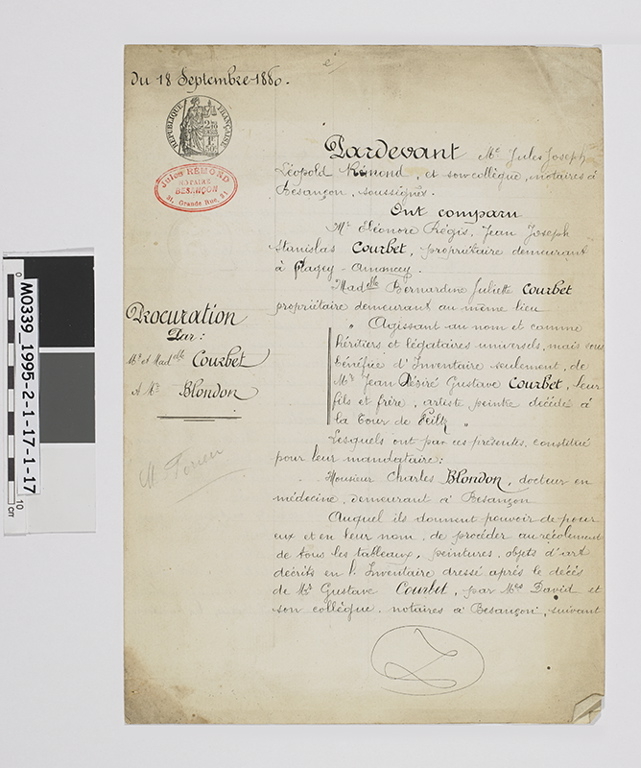 Du 18 Septembre 1880.
RÉPUBLIQUE FRANÇAISE
Jules RÉMOND
NOTAIRE
BESANÇON
31, Grande Rue, 31
Pardevant Me Jules Joseph
Léopold Rémond, et son collègue, notaires à
Besançon, soussignés.
Ont comparu
Mr Eléonore Régis, Jean Joseph
Stanislas Courbet, propriétaire demeurant
à Flagey - Amancey.
Madelle Bernardine Juliette Courbet
propriétaire demeurant au même lieu
" Agissant au nom et comme
héritiers et légataires universels, mais sous
bénéfice d'Inventaire seulement, de
Mr Jean Désiré Gustave Courbet, leur
fils et frère, artiste peintre décédé à
la Tour de Peilz "
Lesquels ont par ces présentes, constitué
pour leur mandataire:
Monsieur Charles Blondon, docteur en
médecine, demeurant à Besançon
Auquel ils donnent pouvoir de pour
eux et en leur nom, de procéder au récolement
de tous les tableaux, peintures, objets d'art
décrits en l'Inventaire dressé après le décès
de Mr Gustave Courbet, par Mes David et
son collègue, notaires à Besançon, suivant
Procuration
Par:
Mr et Madelle Courbet
A Mr Blondon
M0339_1995-2-1-17-1-17
0
10
cm